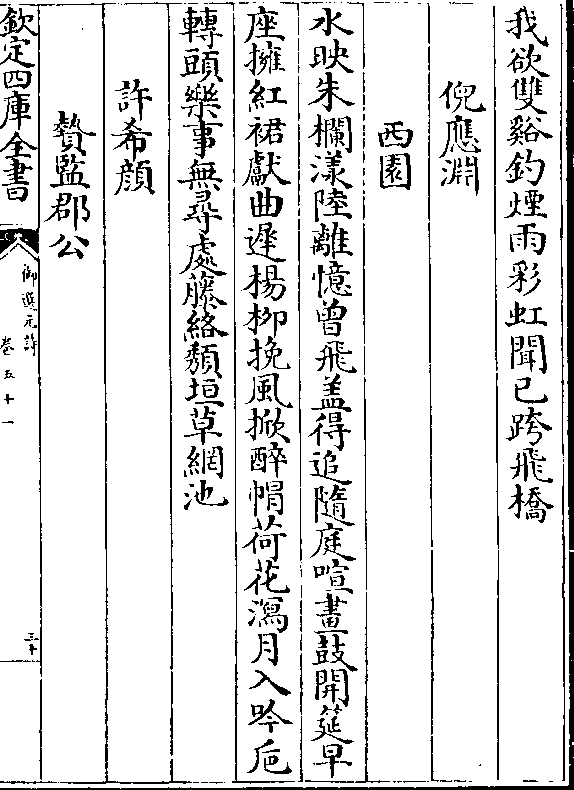 我欲雙谿釣煙雨彩虹聞已跨飛橋
倪應淵
西園
水映朱欄漾陸離憶曾飛盖得追隨庭喧畫鼓開筵早
座擁紅裙獻曲遲楊柳挽風掀醉帽荷花瀉月入吟巵
轉頭樂事無尋處藤絡頽垣草網池
許希顔
贄監郡公
欽定四庫全書
御選元詩
卷五十一
三十